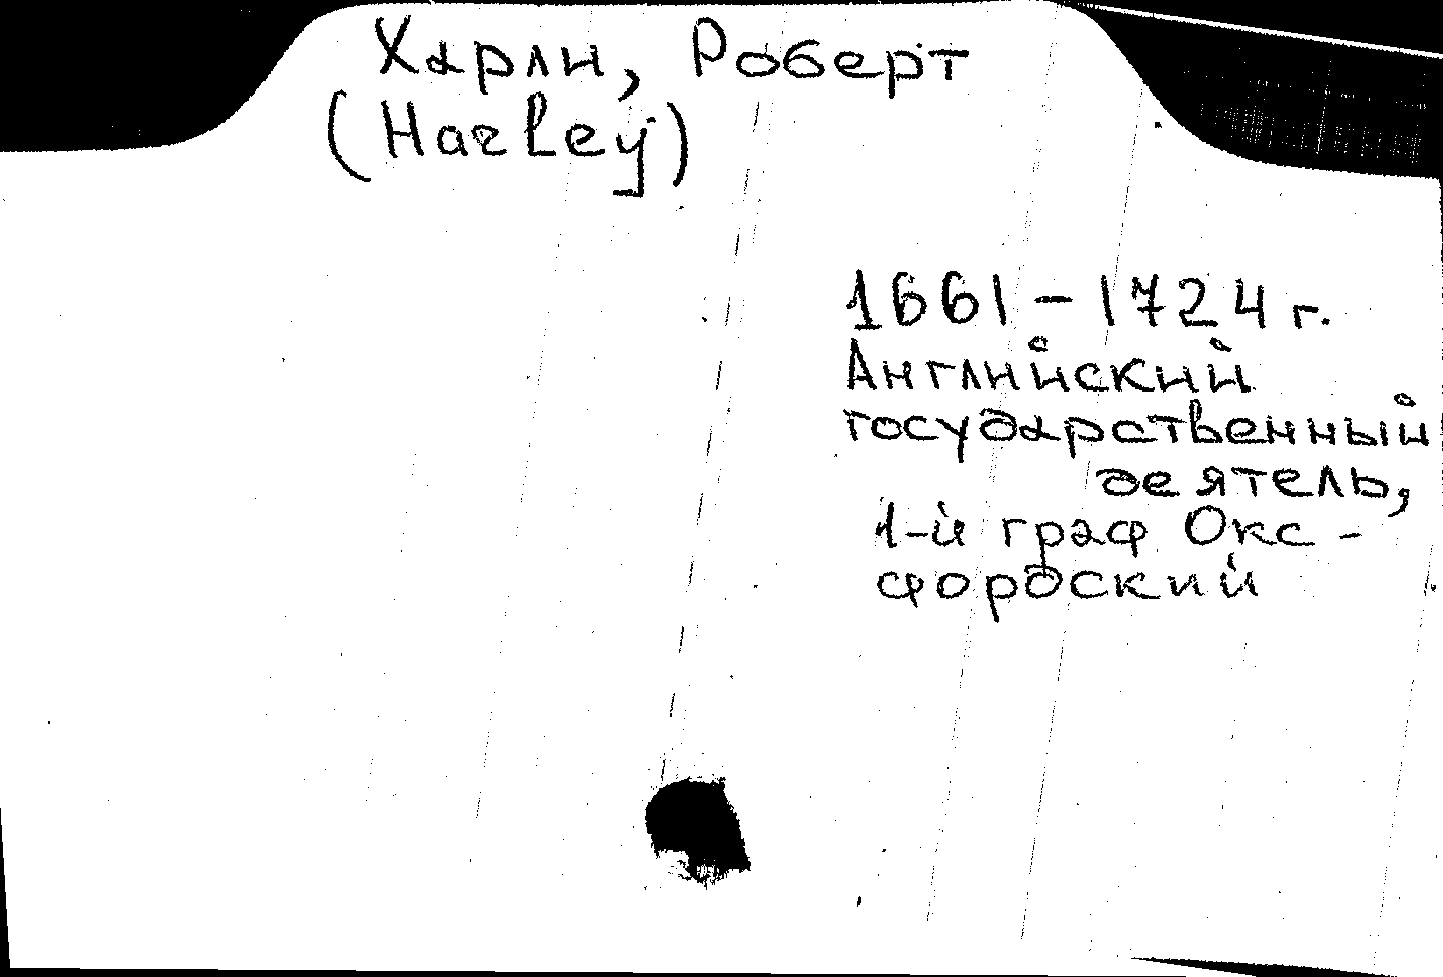 Харли, Роберт
(Harley)
1661-1724 г.
Английский
государственный
деятель,
1-й граф Окс-
фордский